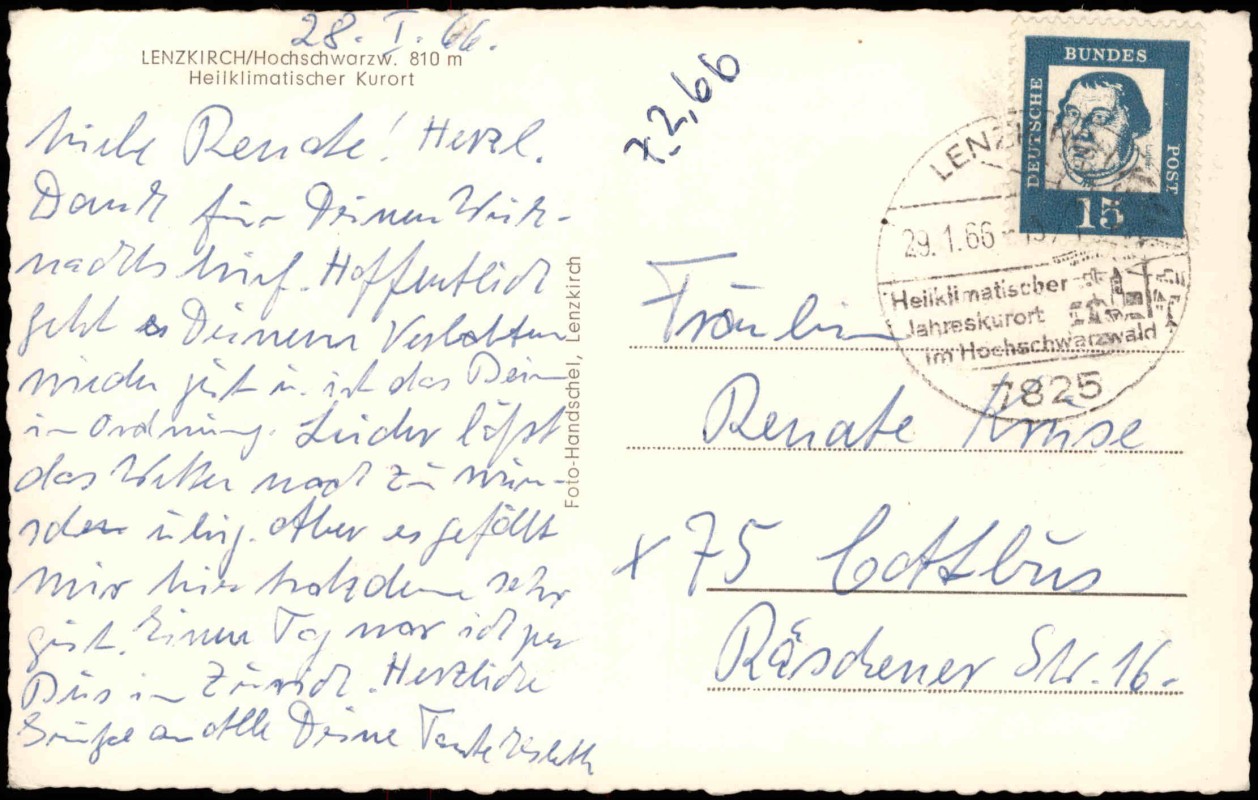 28. I. 66.
LENZKIRCH/Hochschwarzw. 810 m
Heilklimatischer Kurort
Liebe Renate! Herzl.
Dank für Deinen Weih-
nachtsbrief. Hoffentlich
geht es Deinem
wieder gut u. ist das Bein
in Ordnung. Leider läßt
das Wetter noch zu wün-
schen übrig. Aber es gefällt
mir hier trotzdem sehr
gut. Einen Tag war ich per
Bus in Zürich. Herzliche
Grüße an Alle Deine Tante
Foto-Handschel, Lenzkirch
7.2.66
DEUTSCHE BUNDES POST
Luther
15
LENZ
29.1.66
Heilklimatischer
Jahreskurort
im Hochschwarzwald
7825
Fräulein
Renate Kruse
x 75 Cottbus
Räschener Str. 16.